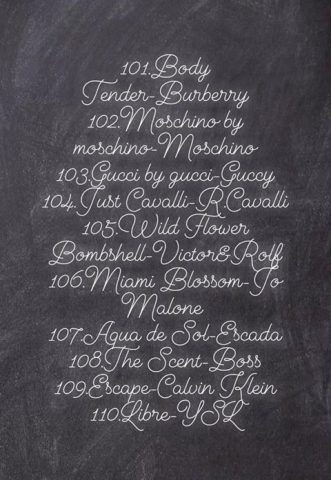 101.Body
Tender-Burberry
102.Moschino by
moschino-Moschino
103.Gucci by gucci-Guccy
104.Just Cavalli-R.Cavalli
105.Wild Flower
Bombshell-Victor&Rolf
106.Miami Blossom-Jo
Malone
107.Agua de Sol-Escada
108.The Scent-Boss
109.Escape-Calvin Klein
110.Libre-YSL